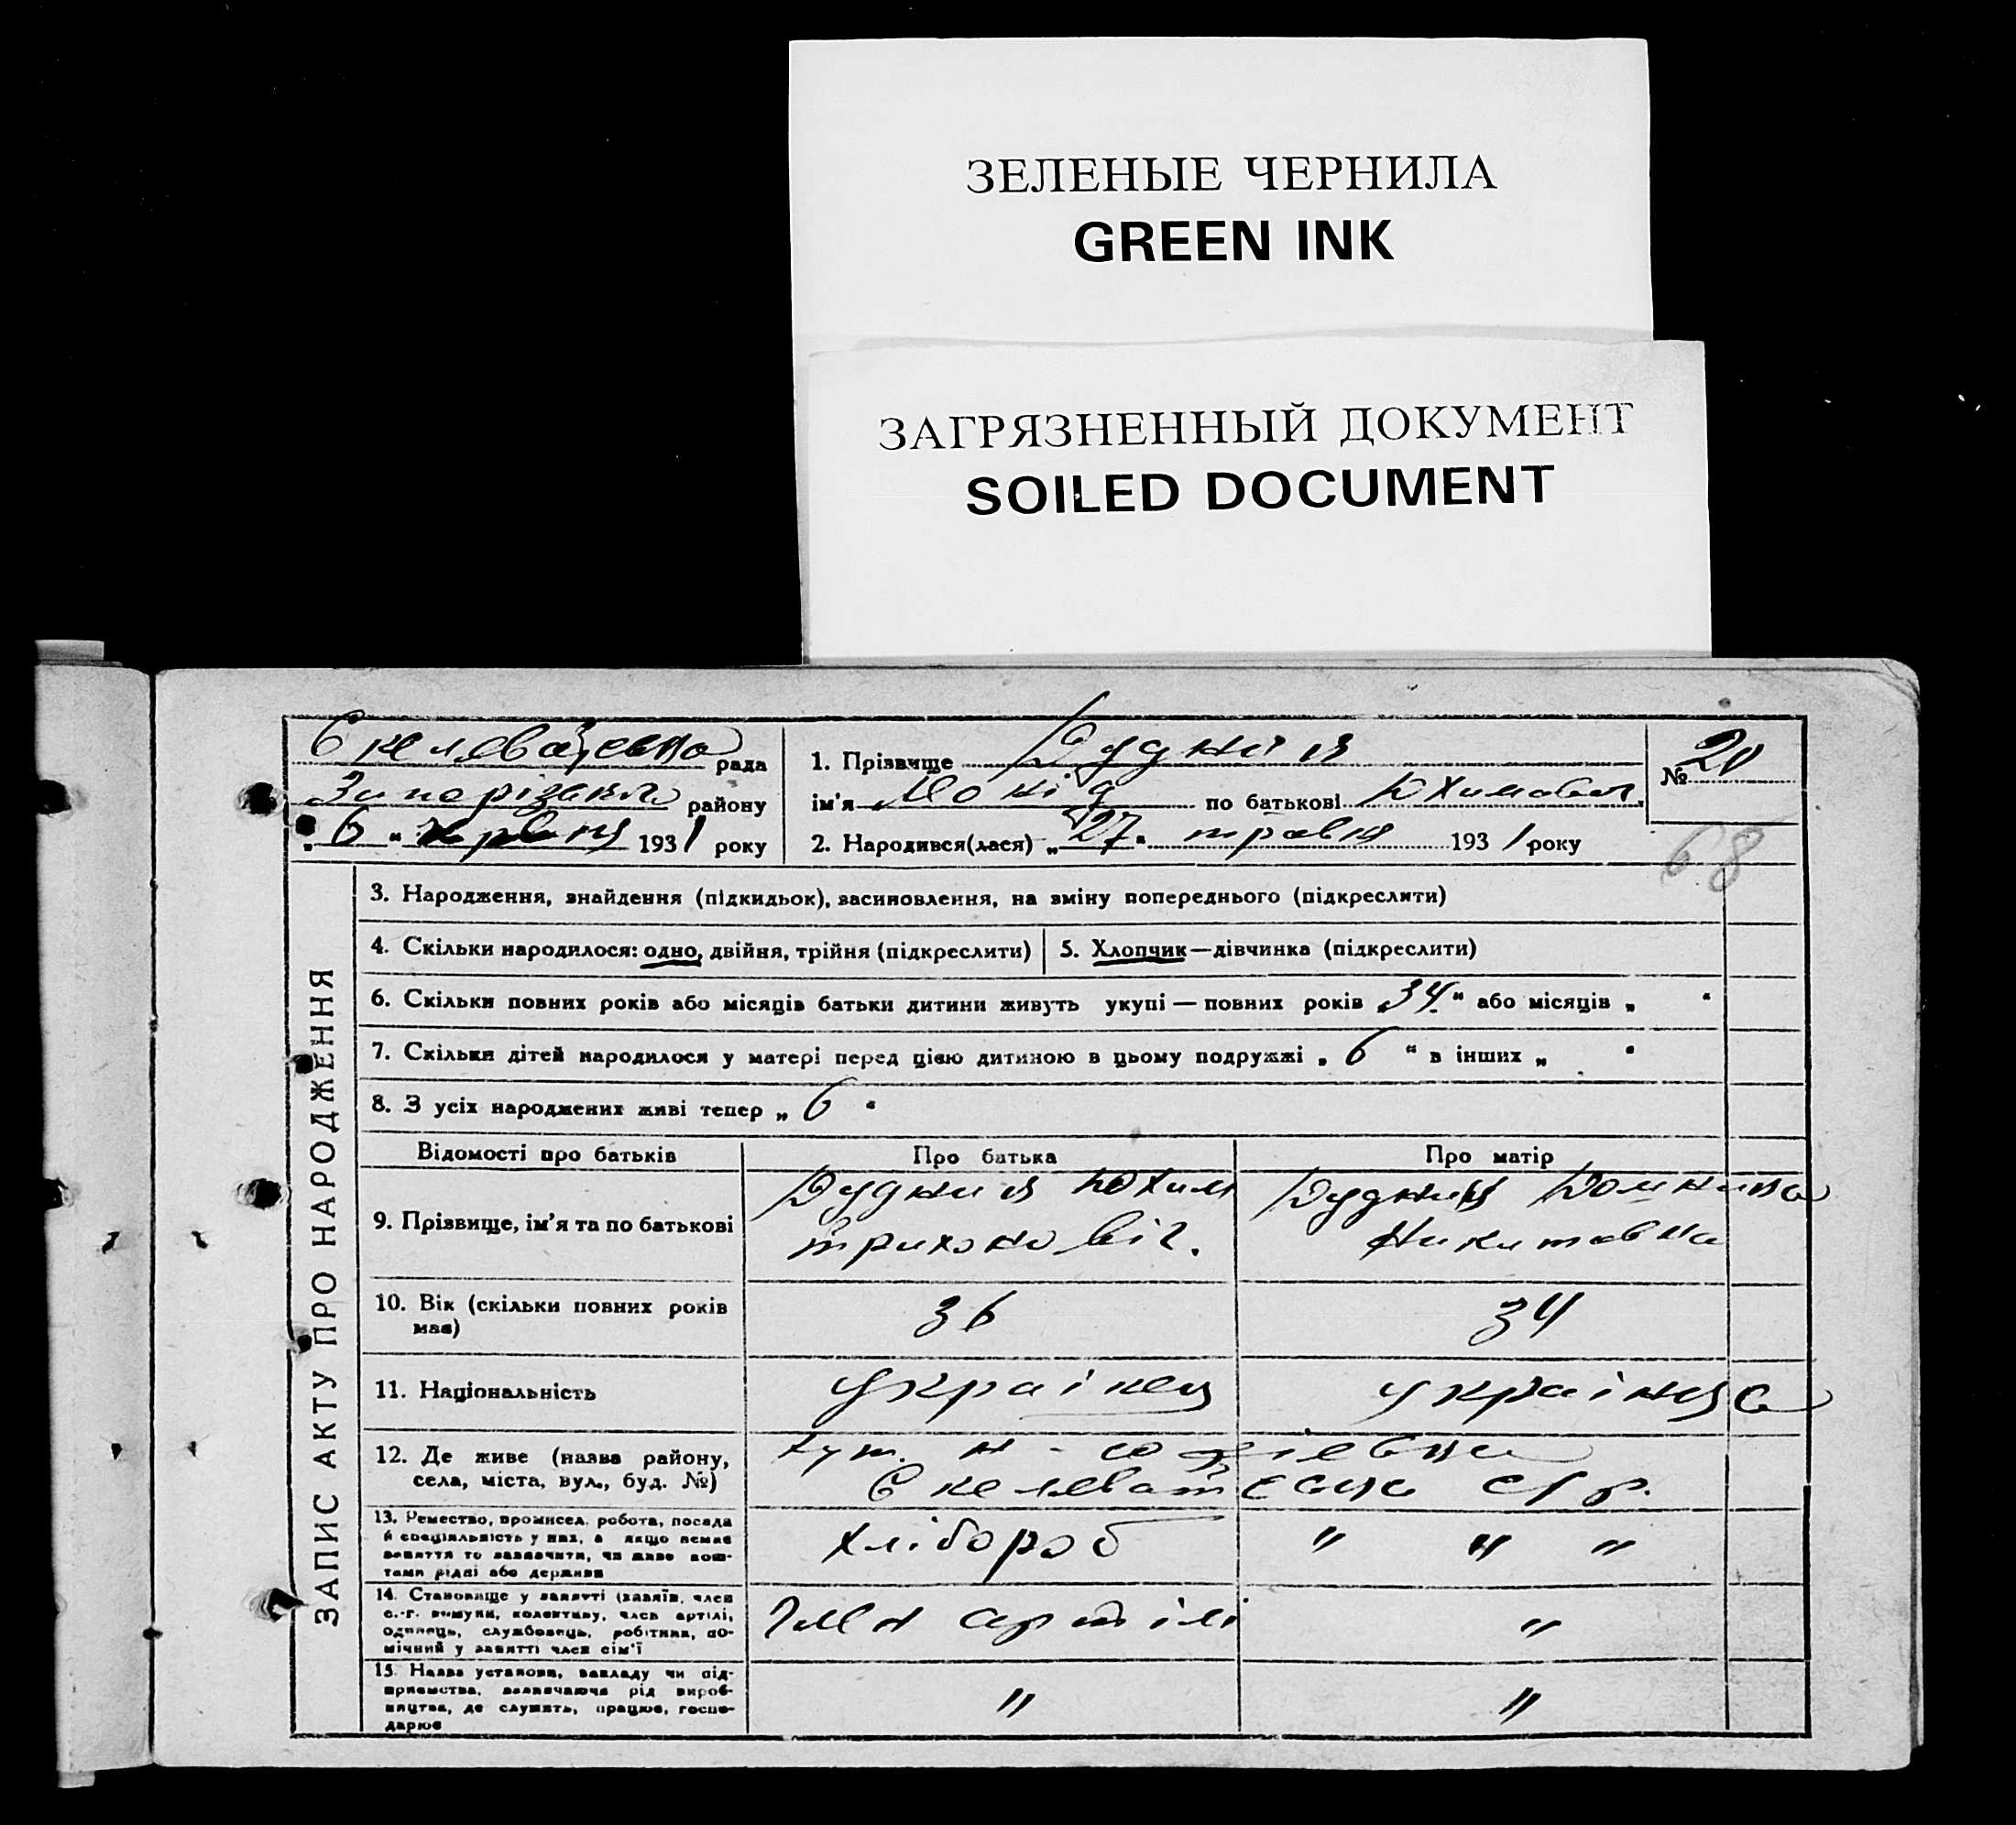 ЗЕЛЕНЫЕ ЧЕРНИЛА
GREEN INK
ЗАГРЯЗНЕННЫЙ ДОКУМЕНТ
SOILED DOCUMENT
рада
району
„ 6 " червня 1931 року
1. Прізвище Дудник
ім'я по батькові Юхимович
2. Народився(лася) „ 27 " травня 1931 року
№ 20
68
ЗАПИС АКТУ ПРО НАРОДЖЕННЯ
3. Народження, знайдення (підкидьок), засиновлення, на зміну попереднього (підкреслити)
4. Скільки народилося: одно, двійня, трійня (підкреслити)
5. Хлопчик—дівчинка (підкреслити)
6. Скільки повних років або місяців батьки дитини живуть укупі — повних років „ 34 " або місяців „ "
7. Скільки дітей народилося у матері перед цією дитиною в цьому подружжі „ 6 " в інших „ "
8. З усіх народжених живі тепер „ 6 "
Відомості про батьків Про батька Про матір
9. Прізвище, ім'я та по батькові
Дудник Юхим
Дудник
Никитовна
10. Вік (скільки повних років має)
36
34
11. Національність
українец
українца
12. Де живе (назва району,
села, міста, вул., буд. №)
хут.
13. Ремество, промисел, робота, посада
й спеціяльність у них, а якщо немає
заняття то зазначити, чи живе кош-
тами рідні або держави
хлібороб
" " "
14. Становище у занятті (хазяїн, член
с.-г. комуни, колективу, член артілі,
одинець, службовець, робітник, по-
мічний у занятті член сім'ї
член артілі
"
15. Назва установи, закладу чи під-
приємства, зазначаючи рід вироб-
ництва, де служить, працює, госпо-
дарює
"
"